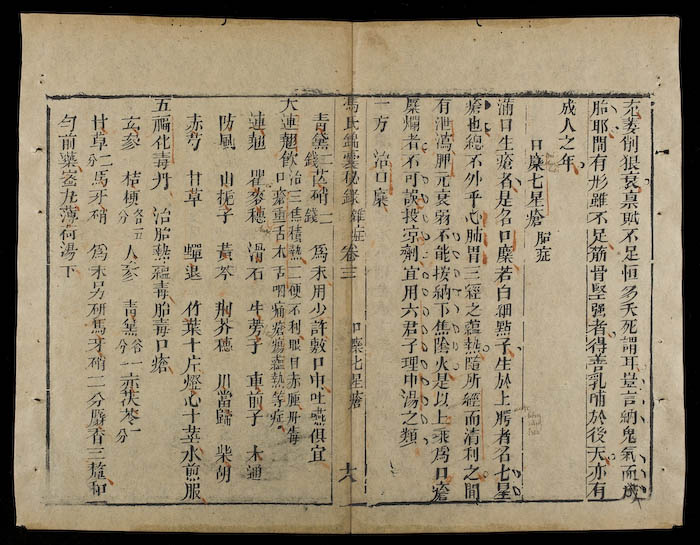 尫羸削狠衰禀賦不足恒多夭死謂耳豈言納鬼氣而成
胎耶間有形雖不足筋骨堅強者得善乳哺於後天亦有
成人之年
口糜七星瘡 胎症
滿口生瘡者是名口糜若白細點子生於上腭者名七星
瘡也總不外乎心肺胃三經之蘊熱隨所經而清利之間
有泄瀉脾元衰弱不能按納下焦陰火是以上乘為口瘡
糜爛者不可誤投涼劑宜用六君子理中湯之類
一方 治口糜
馮氏錦囊秘錄 雜症 卷三 口糜七星瘡 六
青黛二錢 芒硝二錢 為末用少許敷口中吐嚥俱宜
大連翹飲 治三焦積熱二便不利眼目赤腫丹毒口糜重舌木舌咽痛瘡瘍蘊熱等症
連翹 瞿麥穗 滑石 牛蒡子 車前子 木通
防風 山梔子 黃芩 荊芥穗 川當歸 柴胡
赤芍 甘草 蟬退 竹葉十片燈心十莖水煎服
五福化毒丹 治胎熱蘊毒胎毒口瘡
玄參 桔梗各五分 人參 青黛各一分 赤茯苓一分
甘草二分 馬牙硝 為末另研馬牙硝二分麝香三釐和
勻前藥蜜丸薄荷湯下